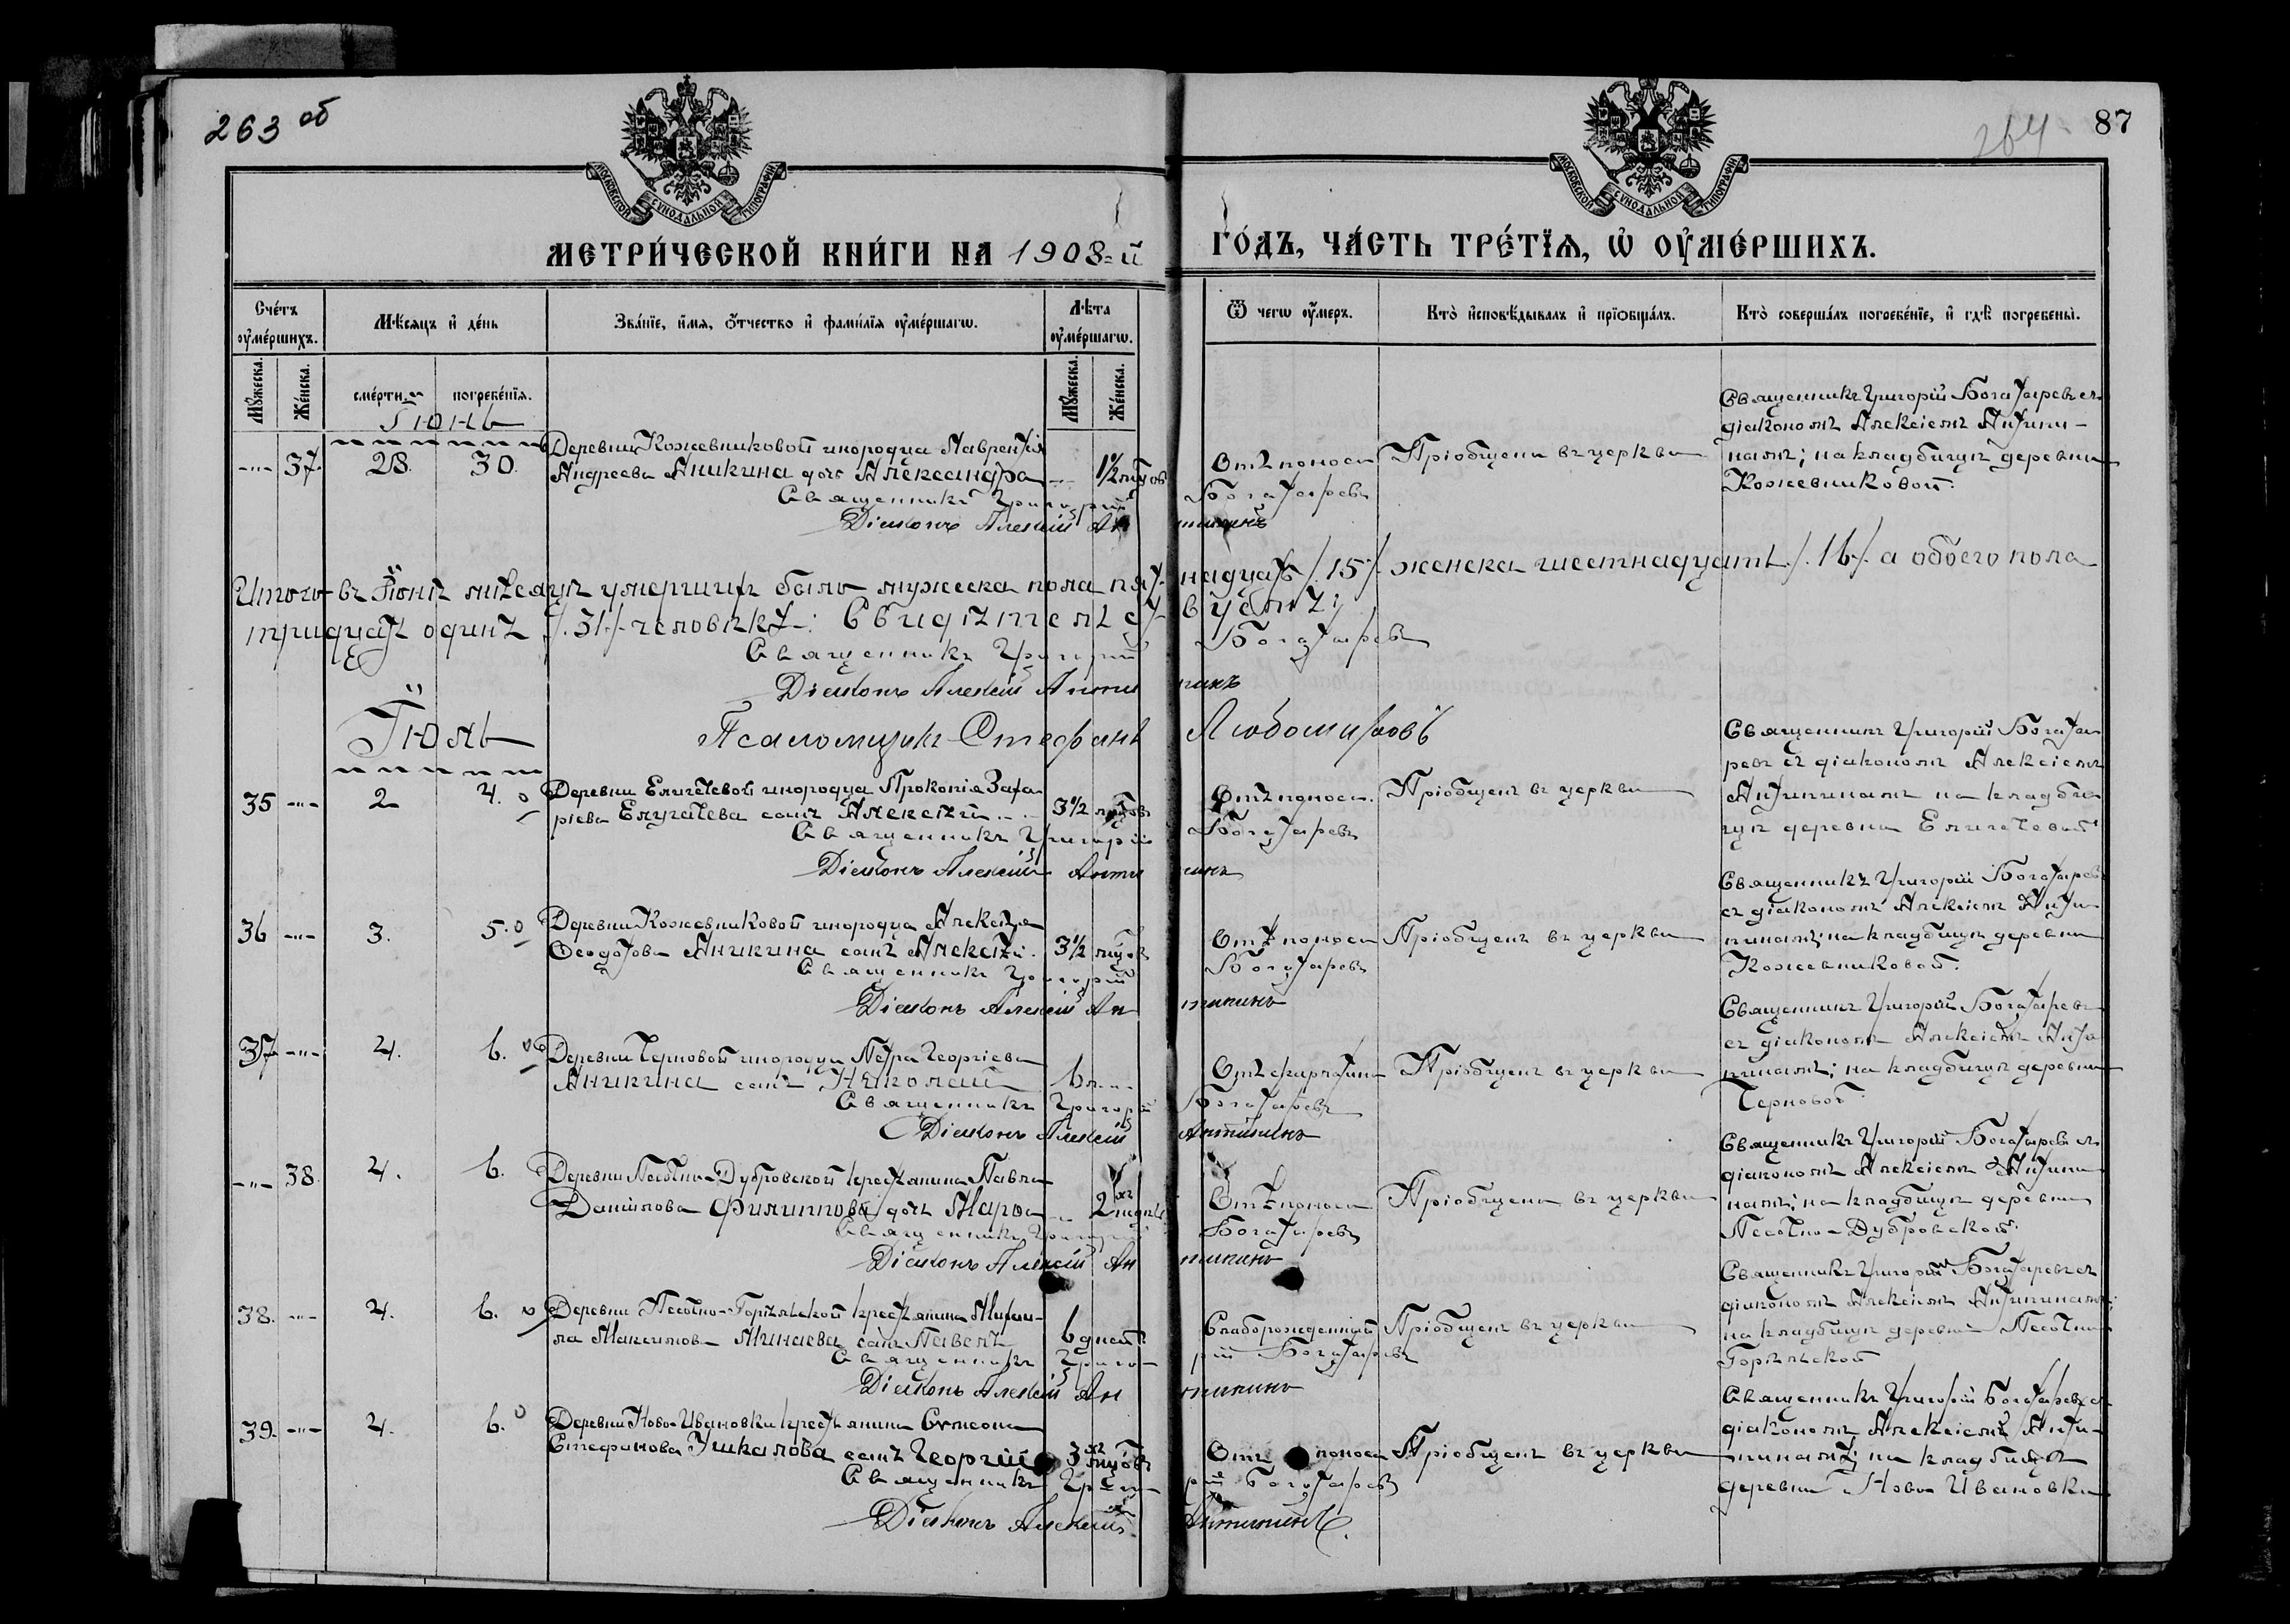 263 об
264
87
МОСКОВСКОЙ СУНОДАЛЬНОЙ ТИПОГРАФІИ
МОСКОВСКОЙ СУНОДАЛЬНОЙ ТИПОГРАФІИ
МЕТРИ́ЧЕСКОЙ КНИ́ГИ НА 1908-й ГО́ДЪ, ЧА́СТЬ ТРЕ́ТЇѦ, Ѡ҆ ОУ҆МЕ́РШИХЪ.
Сче́тъ оу҆ме́ршихъ.
Мѣ́сяцъ и҆ де́нь
Зва́нїе, и҆́мя, ѻ҆́тчество и҆ фами́лїя оу҆ме́ршагѡ.
Лѣ́та оу҆ме́ршагѡ.
Ѿ чегѡ̀ оу҆́меръ.
Кто̀ и҆сповѣ́дывалъ и҆ прїѻбща́лъ.
Кто̀ соверша́лъ погребе́нїе, и҆ гдѣ̀ погребены̀.
Мꙋ́жеска.
Же́нска.
сме́рти.
погребе́нїя.
Мꙋ́жеска.
Же́нска.
Іюнь
-"- 37. 28. 30. Деревни Кожевниковой инородца Лаврентія
Андреева Аникина дочь Александра -"- 1½ мѣсяцовъ Отъ поноса Пріобщена въ церкви
Священникъ Григорій Богатыревъ
Діаконъ Алексій Антипинъ
Священникъ Григорій Богатыревъ съ
діакономъ Алексіемъ Антипи-
намъ; на кладбищѣ деревни
Кожевниковой.
Итого въ Іюнѣ мѣсяцѣ умершихъ было мужеска пола пятнадцать /.15/. женска шестнадцать /.16/. а обоего пола
тридцать одинъ /.31./ человѣкъ: Свидѣтельствуемъ:
Священникъ Григорій Богатыревъ
Діаконъ Алексій Антипинъ
Псаломщикъ Стефанъ Любомировъ
Іюль
35 -"- 2 4. Деревни Елигачевой инородца Прокопія Заха-
ріева Елугачева сынъ Алексѣй -"- 3½ мѣсяцовъ Отъ поноса. Пріобщенъ въ церкви
Священникъ Григорій Богатыревъ
Діаконъ Алексій Антипинъ
Священникъ Григорій Богаты-
ревъ съ діакономъ Алексіемъ
Антипинамъ на кладби-
щѣ деревни Елигачевой
36 -"- 3. 5. Деревни Кожевниковой инородца Алексѣя
Ѳеодотова Аникина сынъ Алексѣй. 3½ мѣсяцовъ Отъ поноса Пріобщенъ въ церкви
Священникъ Григорій Богатыревъ
Діаконъ Алексій Антипинъ
Священникъ Григорій Богатыревъ
съ діакономъ Алексіемъ Анти-
пинамъ; на кладбищѣ деревни
Кожевниковой.
37 -"- 4. 6. Деревни Черновой инородца Петра Георгіева
Аникина сынъ Николай 6 Отъ скарлатины Пріобщенъ въ церкви
Священникъ Григорій Богатыревъ
Діаконъ Алексій Антипинъ
Священникъ Григорій Богатыревъ
съ діакономъ Алексіемъ Анти-
пинамъ; на кладбищѣ деревни
Черновой.
-"- 38. 4. 6. Деревни Песочно-Дубровской крестьянина Павла
Данилова Филиппова дочь Марѳа -"- 2 Отъ поноса Пріобщена въ церкви
Священникъ Григорій Богатыревъ
Діаконъ Алексій Антипинъ
Священникъ Григорій Богатыревъ съ
діакономъ Алексіемъ Антипи-
намъ; на кладбищѣ деревни
Песочно-Дубровской.
38. -"- 4. 6. Деревни Песочно-Горѣльской крестьянина Михаи-
ла Максимова Минаева сынъ Павелъ 6 дней. Слаборожденный Пріобщенъ въ церкви
Священникъ Григорій Богатыревъ
Діаконъ Алексій Антипинъ
Священникъ Григорій Богатыревъ съ
діакономъ Алексіемъ Антипинамъ;
на кладбищѣ деревни Песочно
Горѣльской
39. -"- 4. 6. Деревни Ново-Ивановки крестьянина Сѵмеона
Стефанова Ушкалова сынъ Георгій 3 мѣсяцовъ Отъ поноса Пріобщенъ въ церкви
Священникъ Григорій Богатыревъ
Діаконъ Алексій Антипинъ.
Священникъ Григорій Богатыревъ съ
діакономъ Алексіемъ Анти-
пинамъ; на кладбищѣ
деревни Ново Ивановки